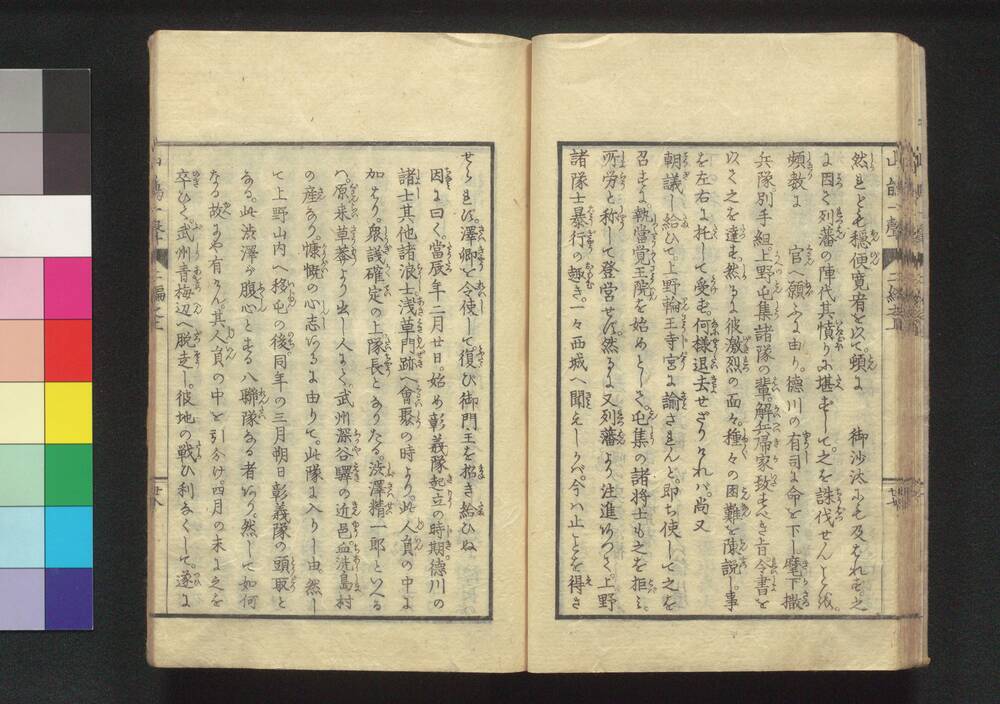 然れども穏便寛宥を以て。頓に　御沙汰にも及ばれず。之
に因て列藩の陣代其憤りに堪ずして。之を誅伐せんことを。
頻数に　官へ願ふに由り。徳川の有司に命を下し。麾下撒
兵隊。別手組。上野屯集諸隊の輩。解兵帰家致すべき旨令書を
以て之を達す。然るに彼激烈の面々。種々の困難を陳説し。事
を左右に托して受ず。何様退去せざりければ。尚又
朝議し給ひて。上野輪王寺宮に諭されんと。即ち使して之を
召すに。執當覚王院を始めとして。屯集の諸将士も之を拒ミ。
所労と称して登営せず。然るに又列藩より注進ありつゝ上野
諸隊士暴行の趣き。一々西城へ聞えしかバ。今ハ止ことを得ず
せられず。澤卿を令使して。復び御門主を招き給ひぬ
因に曰く。當辰年二月廿日。始め彰義隊起立の時期徳川の
諸士其他諸浪士浅草門跡へ會聚の時より。此人員の中に
加はり。衆議確定の上隊長となりたる。渋澤精一郎といへる
ハ。原来草莽より出し人にて。武州深谷驛の近邑血洗島村
の産なり。慷慨の心志あるに由りて。此隊に入りし由然し
て上野山内へ移屯の後。同年の三月朔日彰義隊の頭取と
ある。此渋澤が腹心とする八聯隊なる者あり。然して如何
なる故にや有けん。其人員の中を引分け。四月の末に之を
卒ひて。武州青梅辺へ脱走し。彼地の戦ひ利なくして。遂に
二編之上
廿八